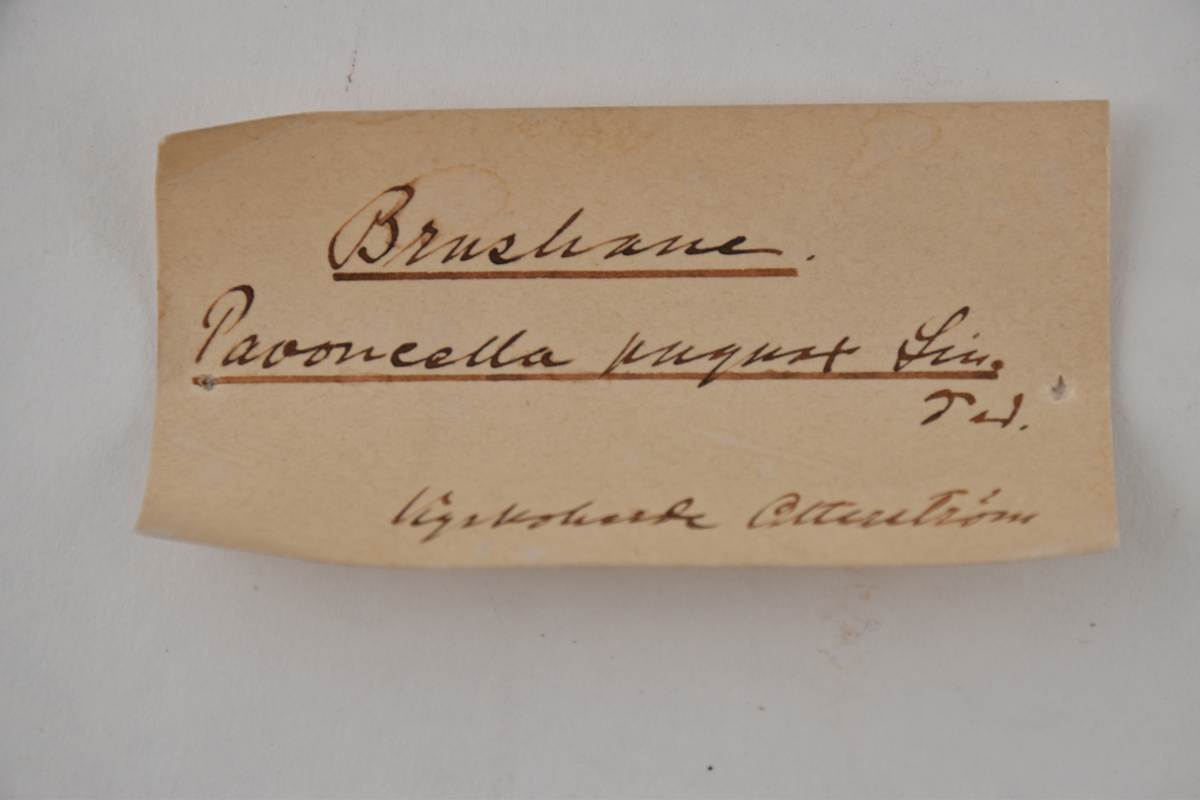 Brushane.
Pavoncella pugnax Lin.
Kyrkoherde Otterström